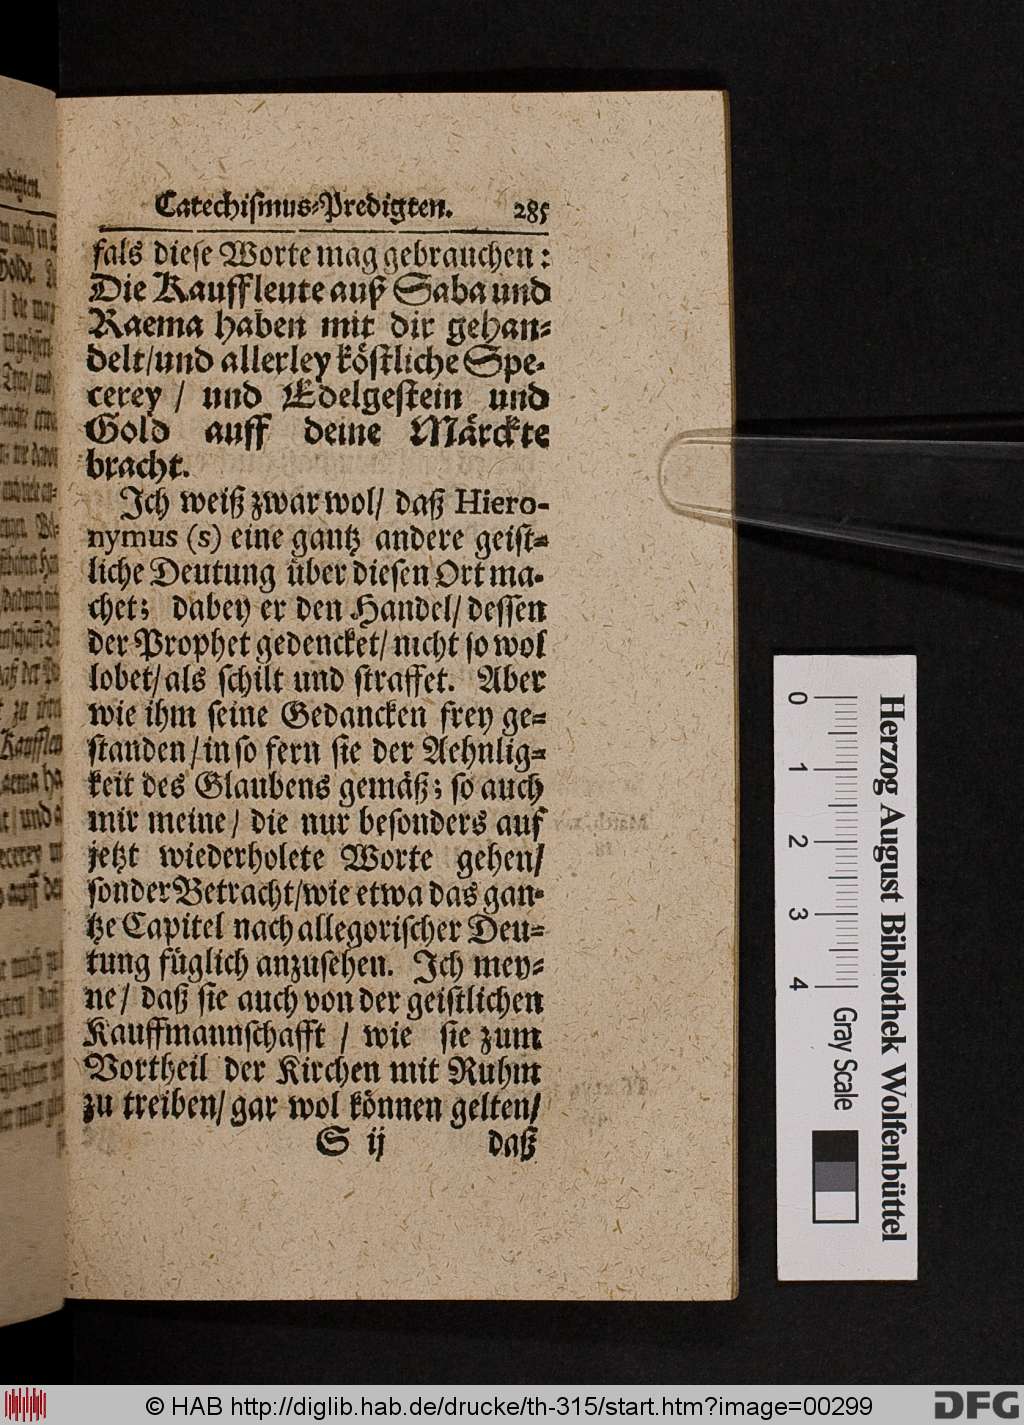 Catechiſmus-Predigten. 285
fals dieſe Worte mag gebrauchen:
Die Kauffleute auß Saba und
Raema haben mit dir gehan-
delt/und allerley köſtliche Spe-
cerey / und Edelgeſtein und
Gold auff deine Märckte
bracht.
Ich weiß zwar wol/ daß Hiero-
nymus (s) eine gantz andere geiſt-
liche Deutung über dieſen Ort ma-
chet; dabey er den Handel/ deſſen
der Prophet gedencket/ nicht ſo wol
lobet/ als ſchilt und ſtraffet. Aber
wie ihm ſeine Gedancken frey ge-
ſtanden/ in ſo fern ſie der Aehnlig-
keit des Glaubens gemäß; ſo auch
mir meine/ die nur beſonders auf
jetzt wiederholete Worte gehen/
ſonder Betracht/wie etwa das gan-
tze Capitel nach allegoriſcher Deu-
tung füglich anzuſehen. Ich mey-
ne/ daß ſie auch von der geiſtlichen
Kauffmannſchafft / wie ſie zum
Vortheil der Kirchen mit Ruhm
zu treiben/ gar wol können gelten/
S ij daß
0 1 2 3 4
Gray Scale
Herzog August Bibliothek Wolfenbüttel
© HAB http://diglib.hab.de/drucke/th-315/start.htm?image=00299
DFG